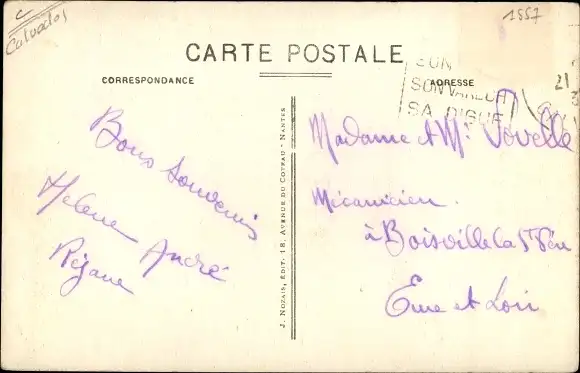 C
Calvados
1857
CARTE POSTALE
CORRESPONDANCE
ADRESSE
SON VARECH
SA DIGUE
21
Bons Souvenirs
Helene André
Réjane
J. NOZAIS, ÉDIT. 18, AVENUE DU COTEAU - NANTES
Madame et Mr
Mécanicien
à Boisville la St Père
Eure et Loir